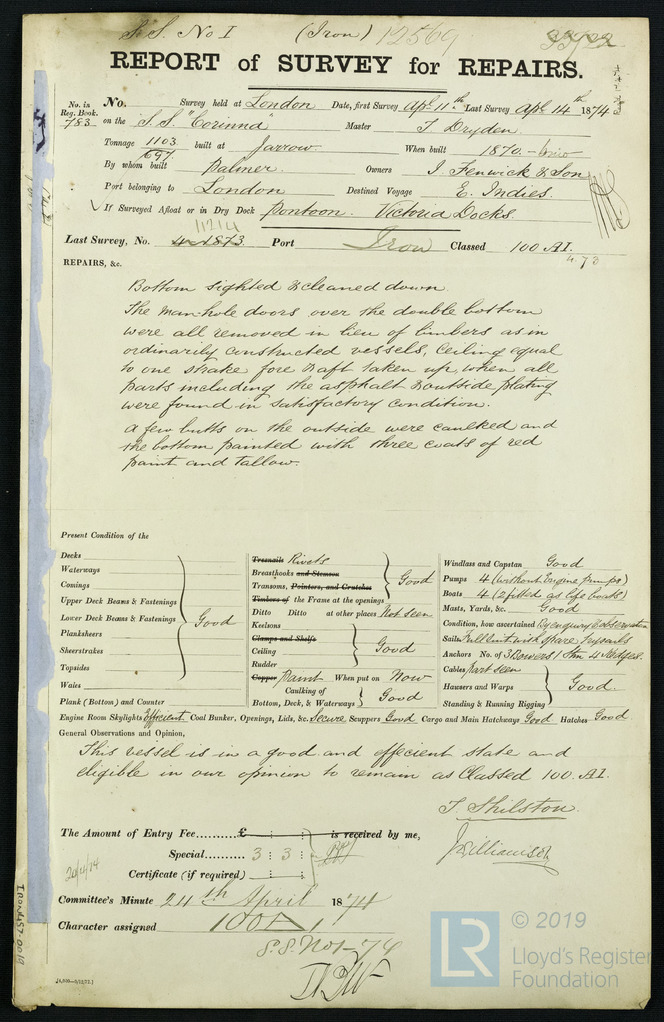 S.S. No I (Iron) 12569
REPORT of SURVEY for REPAIRS.
No. in Reg. Book. 783
No. Survey held at London Date, first Survey Apl 11th Last Survey Apl 14th 1874
on the S.S. "Corinna" Master T Dryden
Tonnage 1103 built at Jarrow When built 1870
697
By whom built Palmer Owners J Fenwick & Son
Port belonging to London Destined Voyage E. Indies.
If Surveyed Afloat or in Dry Dock Pontoon. Victoria Docks.
11214
Last Survey, No. 4-1873. Port Iron Classed 100 A.I.
4.73
REPAIRS, &c.
Bottom sighted & cleaned down
The man-hole doors over the double bottom
were all removed in lieu of limbers as in
ordinarily constructed vessels, ceiling equal
to one strake fore & aft taken up, when all
parts including the asphalt & outside plating
were found in satisfactory condition.
A few butts on the outside were caulked and
the bottom painted with three coats of red
paint and tallow.
Present Condition of the
Decks
Waterways
Comings
Upper Deck Beams & Fastenings
Lower Deck Beams & Fastenings Good
Planksheers
Sheerstrakes
Topsides
Wales
Plank (Bottom) and Counter
Treenails Rivets
Breasthooks and Stemson
Transoms, Pointers, and Crutches Good
Timbers of the Frame at the openings
Ditto Ditto at other places Not seen
Keelsons
Clamps and Shelfs
Ceiling Good
Rudder
Copper Paint When put on Now
Caulking of
Bottom, Deck, & Waterways Good
Windlass and Capstan Good
Pumps 4 (without Engine pumps)
Boats 4 (2 fitted as life boats)
Masts, Yards, &c. Good
Condition, how ascertained By enquiry & observation
Sails Full suit with spare trysails
Anchors No. of 3 Bowers 1 Stm 4 Kedges.
Cables part seen
Hawsers and Warps Good.
Standing & Running Rigging
Engine Room Skylights Efficient Coal Bunker, Openings, Lids, &c. Secure Scuppers Good Cargo and Main Hatchways Good Hatches Good
General Observations and Opinion,
This vessel is in a good and effecient state and
eligible in our opinion to remain as Classed 100 A.I.
T. Shilston.
J Williamson
The Amount of Entry Fee.......... £ : : is received by me,
Special...... 3 : 3 :
Certificate (if required) .... : :
Committee's Minute 24th April 1874
Character assigned 100 A 1
S.S. No 1 - 74
IRON457-0019
LR
© 2019
Lloyd's Register
Foundation